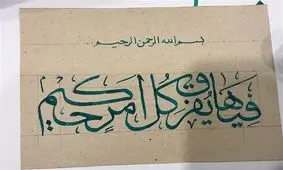 بسم الله الرحمن الرحيم
فيها يفرق كل أمر حكيم